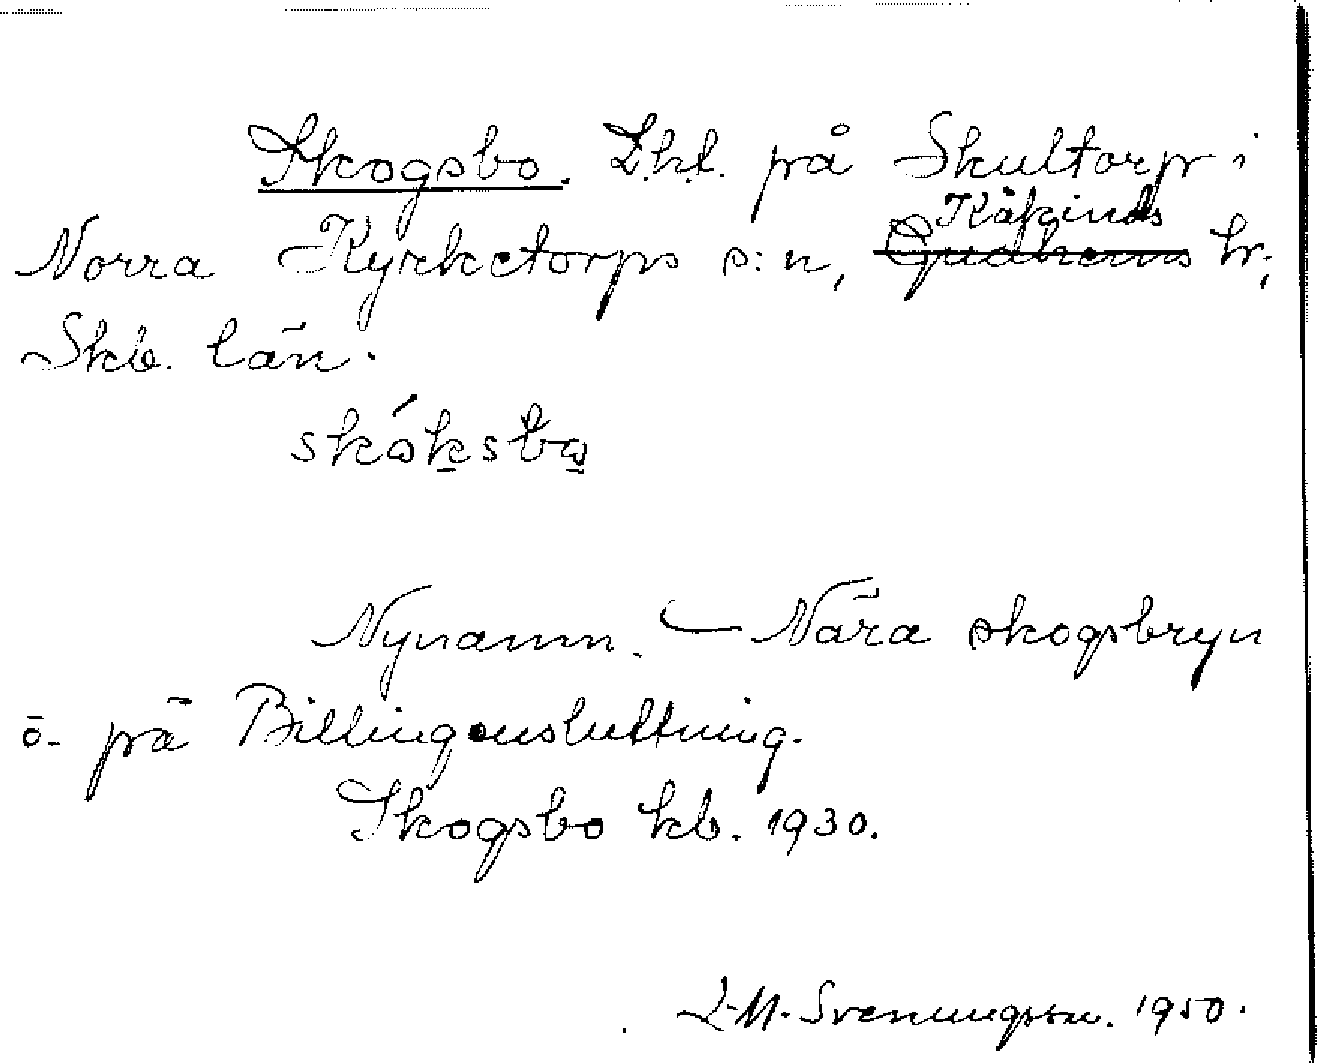 Skogsbo. Lht. på Skultorp i
Norra Kyrketorps s:n, Kåkinds hr,
Skb. län.
skóksbo
Nynamn. — Nära skogsbryn
ö. på Billingensluttning.
Skogsbo kb. 1930.
L-M. Svenungsson. 1950.